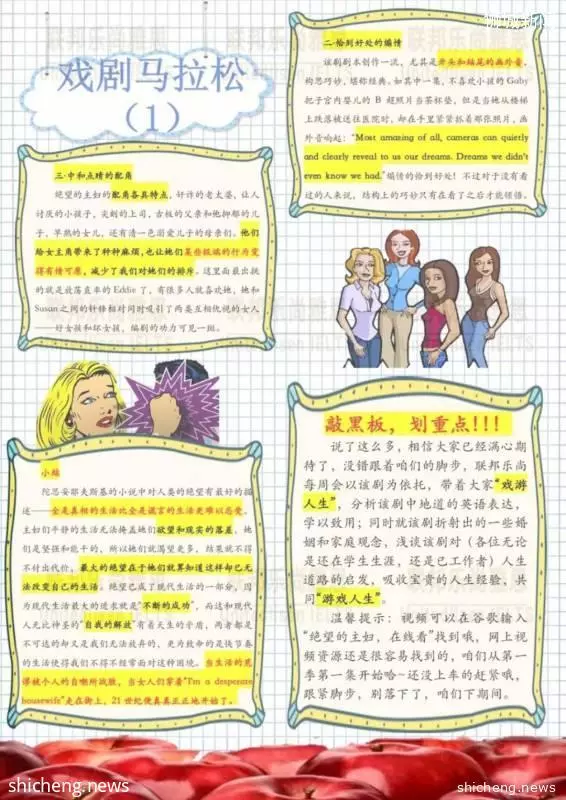 戏剧马拉松
（1）
二·恰到好处的煽情
该剧剧本创作一流，尤其是开头和结尾的画外音，
构思巧妙，堪称经典。如其中一集，不喜欢小孩的Gaby
把子宫内婴儿的 B 超照片当茶杯垫，但是当她从楼梯
上跌落被送往医院时，却在手里紧紧抓着那张照片，画
外音响起：“Most amazing of all, cameras can quietly
and clearly reveal to us our dreams. Dreams we didn't
even know we had.”煽情的恰到好处！不过对于没有看
过的人来说，结构上的巧妙只有在看了之后才能领悟。
三·中和点睛的配角
绝望的主妇的配角各具特点，奸诈的老太婆，让人
讨厌的小孩子，尖刻的上司，古板的父亲和他抑郁的儿
子，早熟的女儿，还有清一色溺爱儿子的母亲们。他们
给女主角带来了种种麻烦，也让她们某些极端的行为变
得有情可原，减少了我们对她们的排斥。这里面最出挑
的就是收荡直率的 Eddie 了，有很多人就喜欢她，她和
Susan 之间的针锋相对同时吸引了两类互相仇视的女人
——好女孩和坏女孩，编剧的功力可见一斑。
小编
陀思妥耶夫斯基的小说中对人类的绝望有最好的描
述——全是真相的生活比全是谎言的生活更难以忍受。
主妇们平静的生活无法掩盖她们欲望和现实的落差，她
们是坚强和能干的，所以她们就渴望更多，结果就不得
不付出代价，最大的绝望在于她们就算知道这样却也无
法改变自己的生活。绝望已成了现代生活的一部分，因
为现代生活最大的追求就是“不断的成功”，而这和现代
人无比神圣的“自我的解放”有着天生的矛盾，两者都是
不可达的却又是我们无法放弃的，更为致命的是快节奏
的生活使得我们不得不经常面对这种困境。当生活的荒
谬被个人的自嘲所战胜，当女人们穿着“I'm a desperate
housewife”走在街上，21 世纪便真真正正地开始了。
敲黑板，划重点！！！
说了这么多，相信大家已经满心期
待了，没错跟着咱们的脚步，联邦乐尚
每周会以该剧为依托，带着大家“戏游
人生”，分析该剧中地道的英语表达，
学以致用；同时就该剧折射出的一些婚
姻和家庭观念，浅谈该剧对（各位无论
是还在学生生涯，还是已工作者）人生
道路的启发，吸收宝贵的人生经验，共
同“游戏人生”。
温馨提示：视频可以在谷歌输入
“绝望的主妇，在线看”找到哦，网上视
频资源还是很容易找到的，咱们从第一
季第一集开始哈~还没上车的赶紧哦，
跟紧脚步，别落下了，咱们下期间。
shicheng.news
shicheng.news